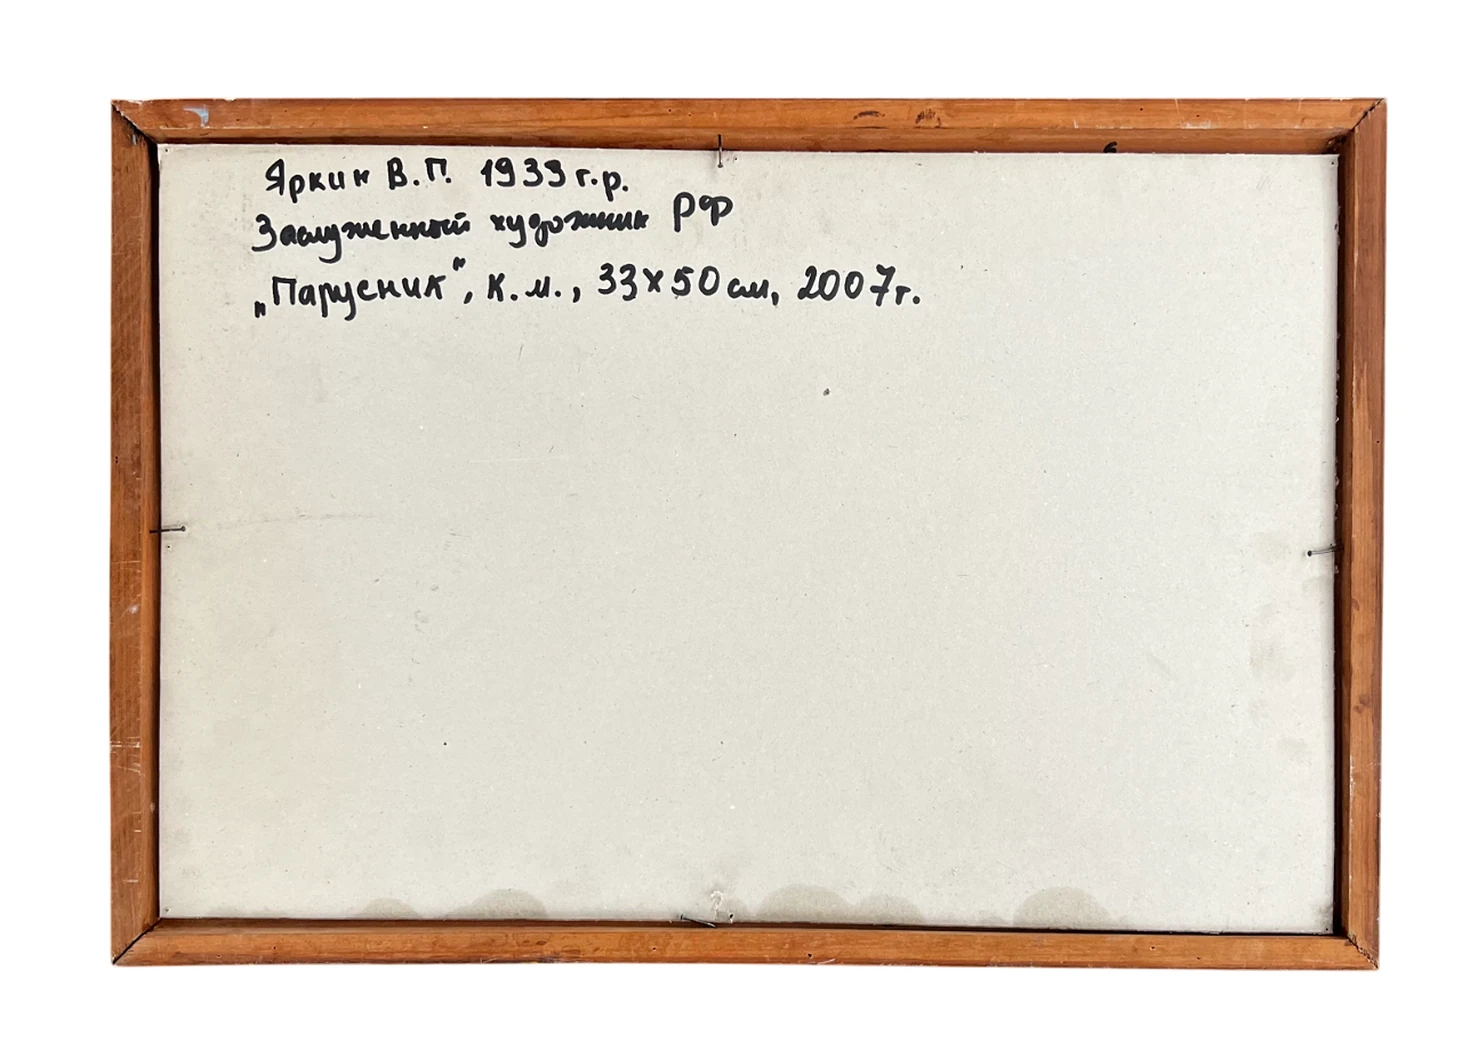 Яркин В.П. 1939 г.р.
Заслуженный художник РФ
„Парусник", к.м., 33x50 см, 2007г.